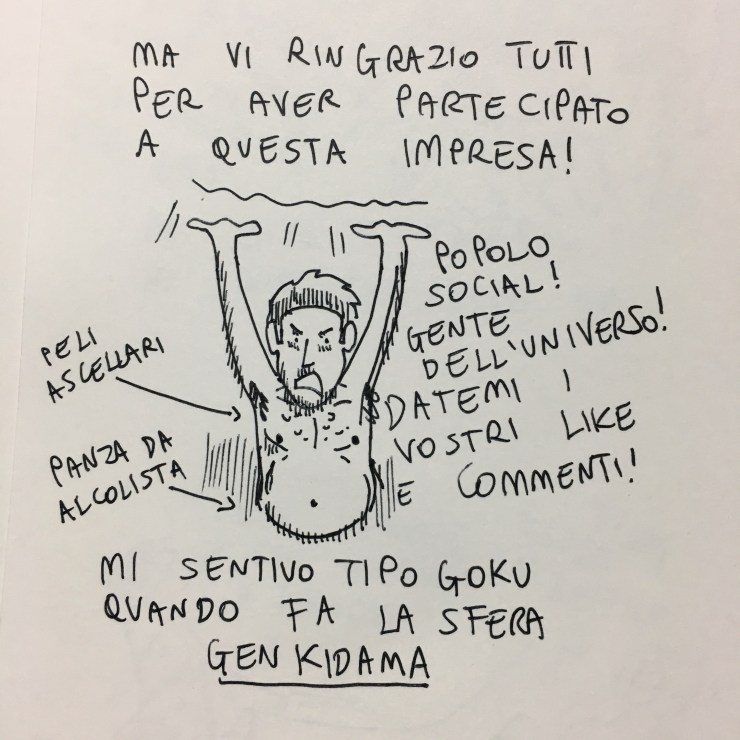 MA VI RINGRAZIO TUTTI
PER AVER PARTECIPATO
A QUESTA IMPRESA!
POPOLO
SOCIAL!
GENTE
DELL'UNIVERSO!
DATEMI I
VOSTRI LIKE
E COMMENTI!
PELI
ASCELLARI
PANZA DA
ALCOLISTA
MI SENTIVO TIPO GOKU
QUANDO FA LA SFERA
GENKIDAMA